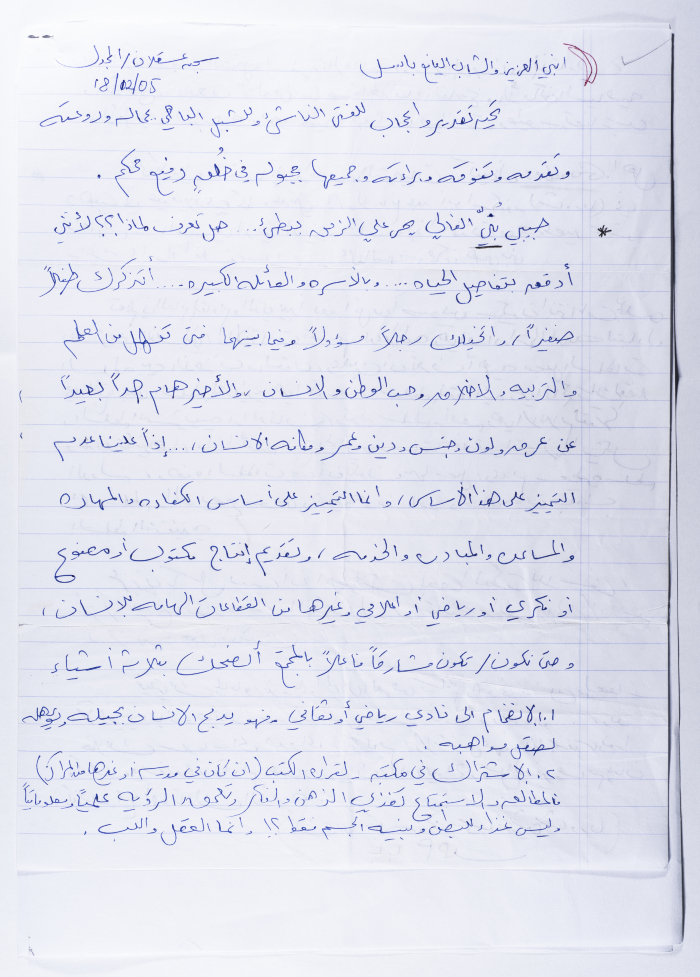 ابني العزيز والشاب اليانع باسل
سجن عسقلان/المجدل
18/02/05
تحية تقدير واعجاب للفتى الناشئ وللشبل الباهي بجماله وروعته
وتقدمه وتفوقه وبراءته وجميعها مجبوله في خُلقٍ رفيع محكم .
* حبيبي بُنيَّ الغالي يمر علي الزمن ببطئ... هل تعرف لماذا؟؟ لأنني
أدقق بتفاصيل الحياه .... وبالأسره والعائله الكبيره .... أتذكرك طفلاً
صغيراً، واتخيلك رجلاً مسؤولاً وفيما بينهما فتى تنهل من العلم
والتربيه والاخلاق وحب الوطن والانسان ، والأخير هام جداً بعيداً
عن عرق ولون وجنس ودين وعمر ومكانه الانسان ،... إذاً علينا عدم
التمييز على هذا الأساس ، وانما التمييز على أساس الكفاءه والمهاره
والمساعده والمبادره والخدمه ، وتقديم إنتاج مكتوب أو مصنوع
أو فكري أو رياضي أو اعلامي وغيرها من القطاعات الهامه للانسان ،
وحتى نكون/تكون مشاركاً فاعلاً بالمجتمع أنصحك بثلاثة أشياء
١. الانضمام الى نادي رياضي أو ثقافي فهو يدمج الانسان بجيله ويؤهله
لصقل مواهبه .
٢. الاشتراك في مكتبه لقراءه الكتب (ان كان في مدرسه او غيرها من المراكز)
فالمطالعه والاستمتاع تغذي الذهن والفكر وتعمق الرؤيه علمياً ومعلوماتياً
وليس غذاء للبطن وبنية الجسم فقط ؟! وانما العقل واللب .